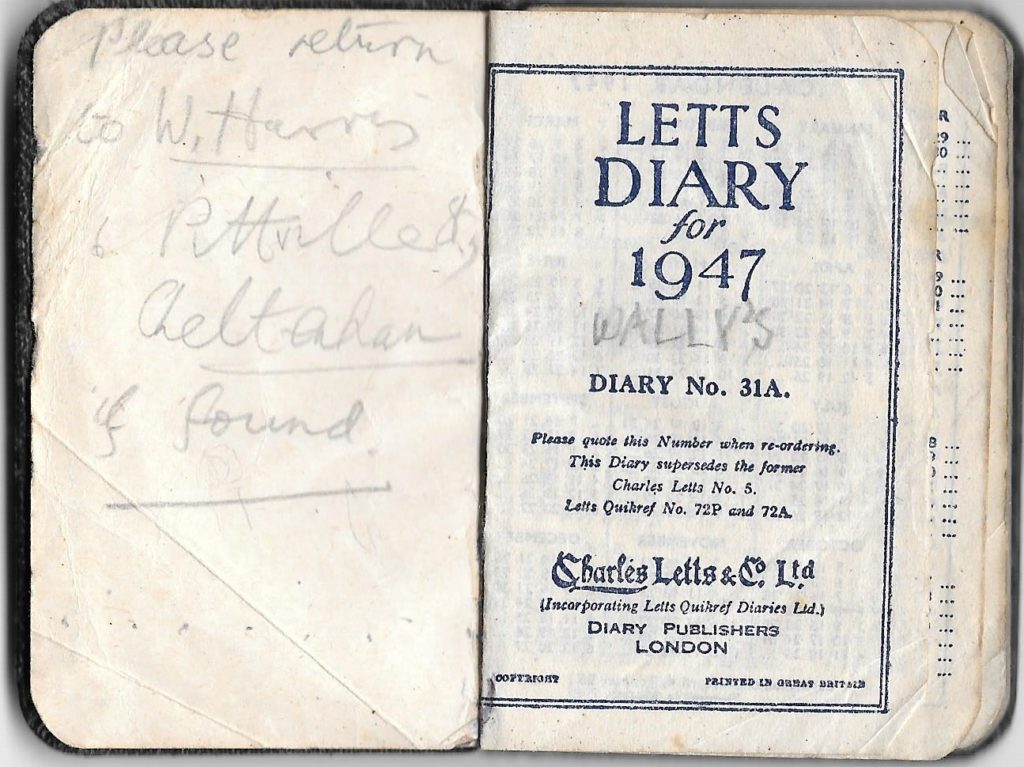 Please return
to W. Harris
6 Pittville St,
Cheltenham
if found
LETTS
DIARY
for
1947
WALLY'S
DIARY No. 31A.
Please quote this Number when re-ordering.
This Diary supersedes the former
Charles Letts No. 5.
Letts Quikref No. 72P and 72A.
Charles Letts & Co. Ltd
(Incorporating Letts Quikref Diaries Ltd.)
DIARY PUBLISHERS
LONDON
COPYRIGHT PRINTED IN GREAT BRITAIN